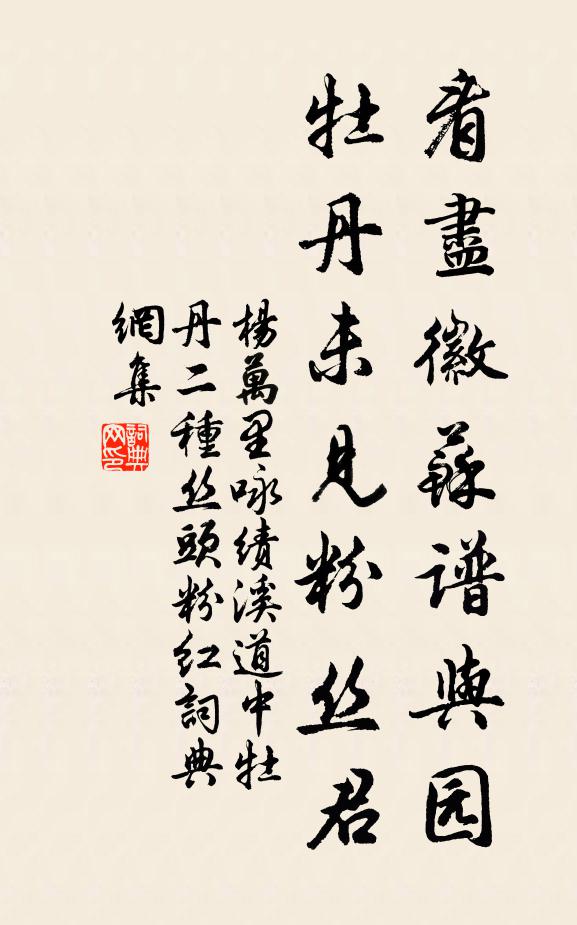 看盡徽蘇譜與园
牡丹未見粉丝君
楊萬里咏績溪道中牡
丹二種丝頭粉红詞典
網集
詞典网印